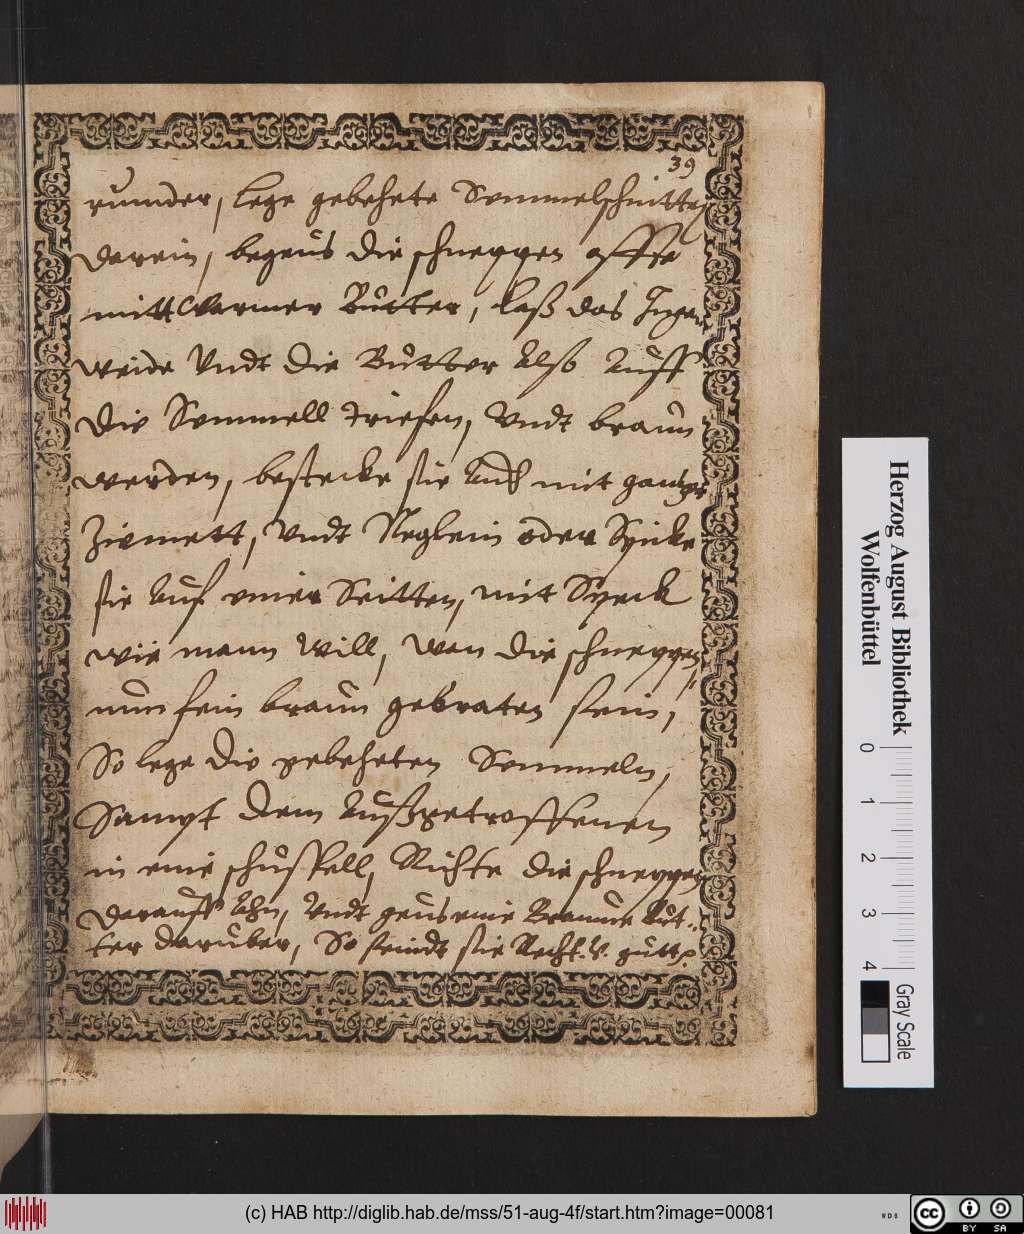 39
runder, Lege gebehete Semmelschnitten
darein, begeus die schneppen offte
mitt Warmer Butter, laß das Inge-
weide Undt die Butter Also Auff
die Semmell triefen, Undt braun
werden, bestecke sie Auch mit gantzer
Zimett, Undt Neglein oder Spicke
sie Auf einer Seitten, mit Speck
wie mann Will, Wen die schneppen
nun fein braun gebraten sein,
So lege die gebeheten Semmeln,
Sampt dem Außgetroffenen
in eine schüssell, Richte die schneppen
darauff Ahn, Undt geus eine Braune But-
ter daruber, So seindt sie Recht. V. gutt
Herzog August Bibliothek
Wolfenbüttel
0 1 2 3 4
Gray Scale
(c) HAB http://diglib.hab.de/mss/51-aug-4f/start.htm?image=00081
WDB
cc BY SA